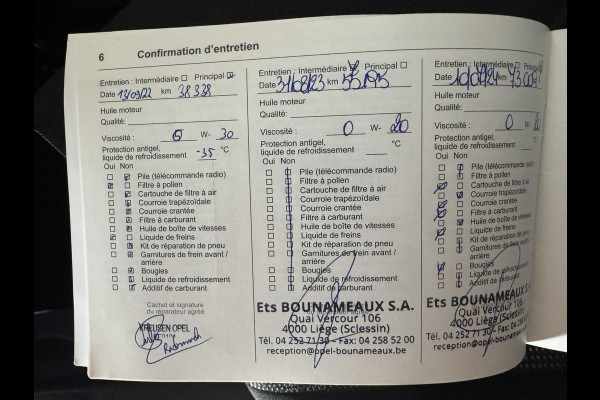 6 Confirmation d'entretien
Entretien : Intermédiaire ☐ Principal ☑
Date 13/09/22 km 38338
Huile moteur
Qualité:
Viscosité : 0 W- 30
Protection antigel,
liquide de refroidissement -35 °C
Oui Non
Pile (télécommande radio)
Filtre à pollen
Cartouche de filtre à air
Courroie trapézoïdale
Courroie crantée
Filtre à carburant
Huile de boîte de vitesses
Liquide de freins
Kit de réparation de pneu
Garnitures de frein avant /
arrière
Bougies
Liquide de refroidissement
Additif de carburant
Cachet et signature
du réparateur agréé
KREUSEN OPEL
Entretien : Intermédiaire Principal ☐
Date 31/08/23 km 55195
Huile moteur
Qualité:
Viscosité : 0 W- 20
Protection antigel,
liquide de refroidissement °C
Oui Non
Pile (télécommande radio)
Filtre à pollen
Cartouche de filtre à air
Courroie trapézoïdale
Courroie crantée
Filtre à carburant
Huile de boîte de vitesses
Liquide de freins
Kit de réparation de pneu
Garnitures de frein avant /
arrière
Bougies
Liquide de refroidissement
Additif de carburant
Ets BOUNAMEAUX S.A.
Quai Vercour 106
4000 Liège (Sclessin)
Tél. 04 252 71 30 - Fax: 04 258 52 00
reception@opel-bounameaux.be
Entretien : Intermédiaire
Date km
Huile moteur
Qualité:
Viscosité : 0 W-
Protection antigel,
liquide de refroidissement
Oui Non
Pile (télécommande radio)
Filtre à pollen
Cartouche de filtre à air
Courroie trapézoïdale
Courroie crantée
Filtre à carburant
Huile de boîte de vitesses
Liquide de freins
Kit de réparation de pneu
Garnitures de frein avant /
arrière
Bougies
Liquide de refroidissement
Additif de carburant
Ets BOUNAMEAUX S.A.
Quai Vercour 106
4000 Liège (Sclessin)
Tél. 04 252 71 30 - Fax: 04 258 52
reception@opel-bounameaux.be